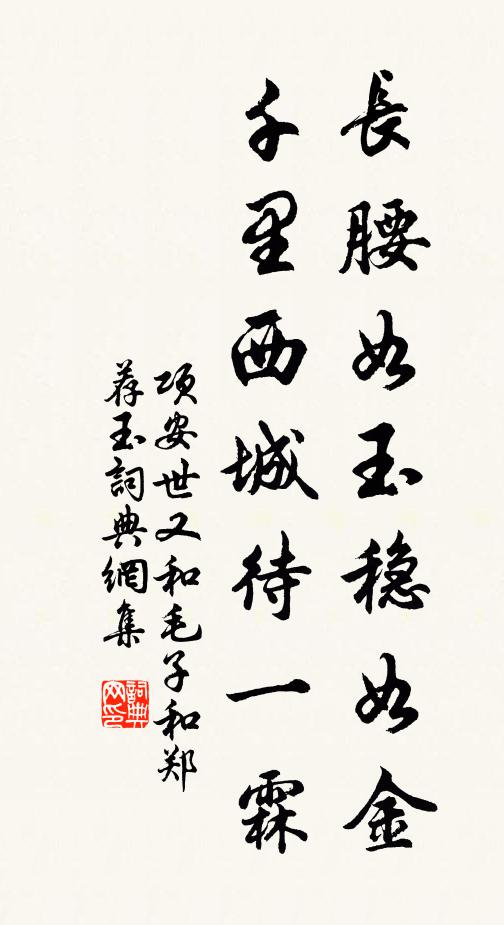 長腰如玉穏如金
千里西城待一霖
項安世又和毛子和郑
荐玉詞典網集
詞典网印